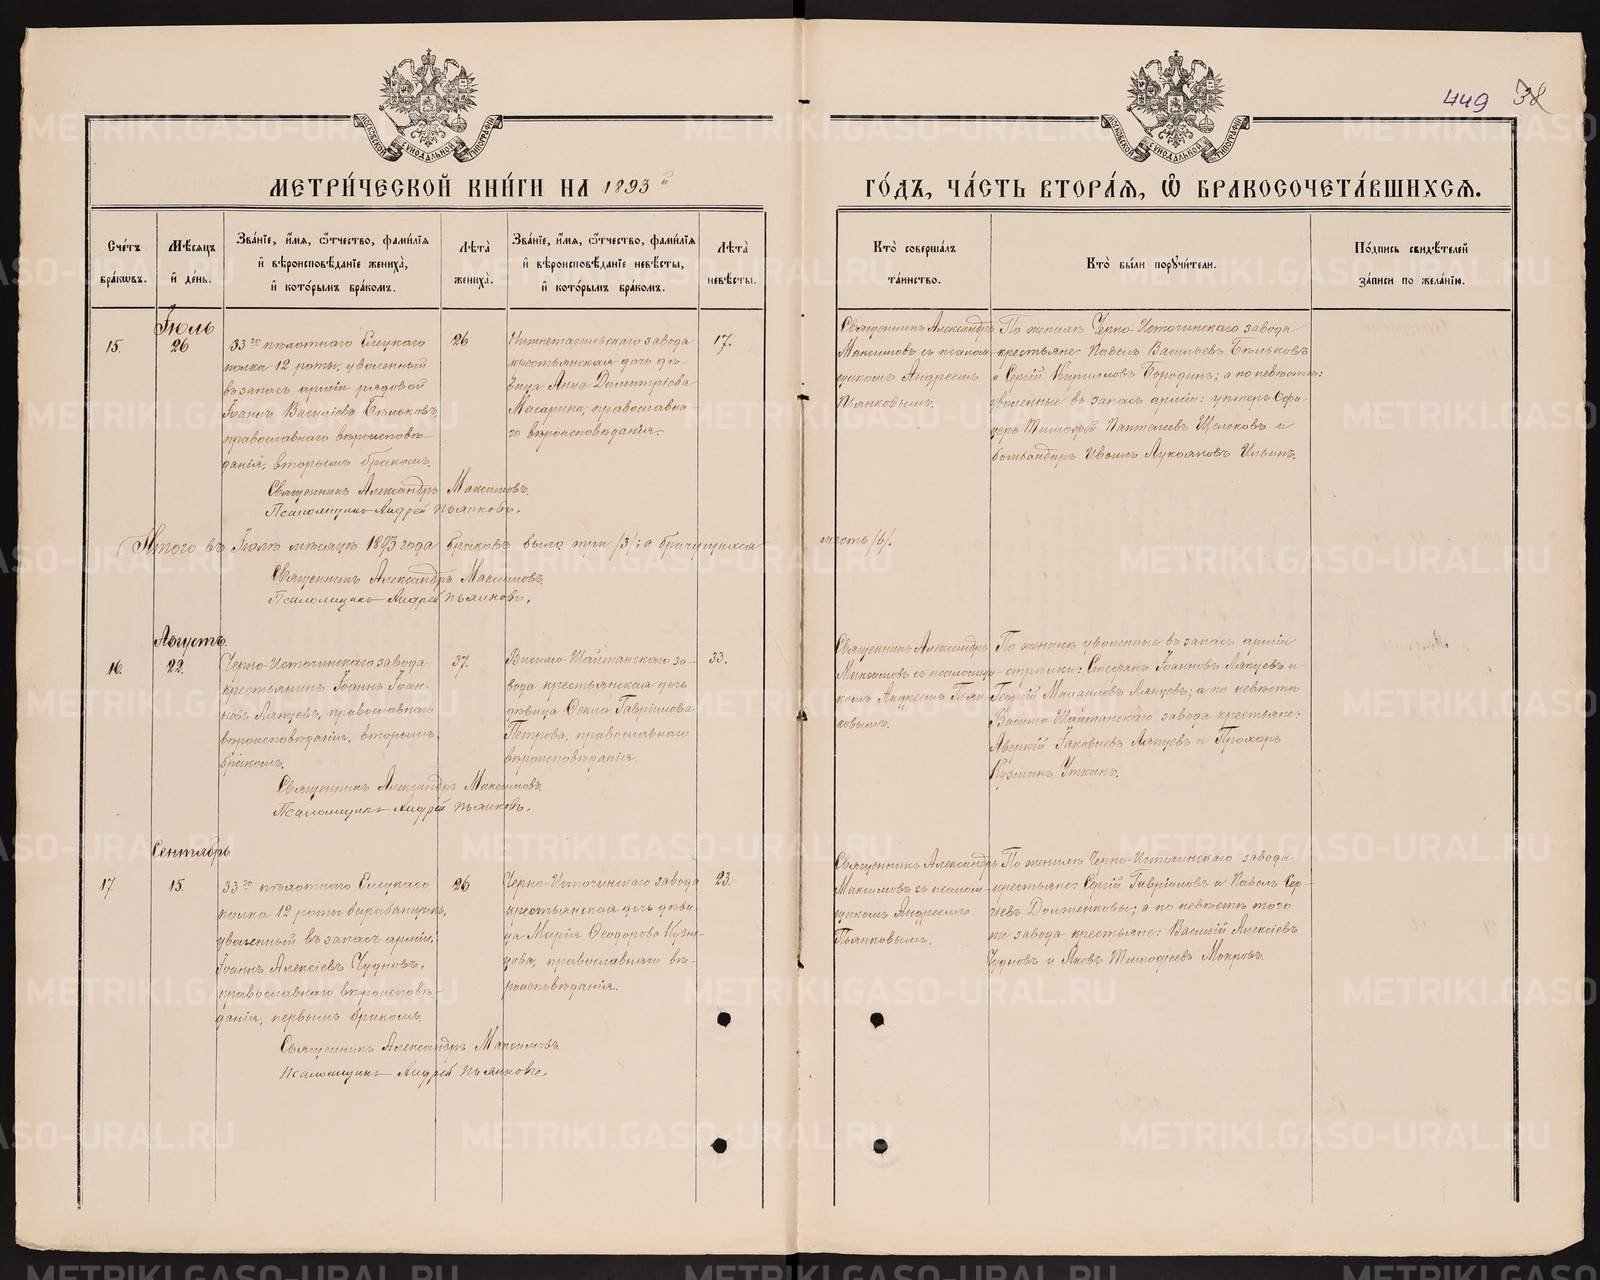 449 38
МОСКОВСКОЙ СѴНОДАЛЬНОЙ ТИПОГРАФІИ
МОСКОВСКОЙ СѴНОДАЛЬНОЙ ТИПОГРАФІИ
МЕТРИ́ЧЕСКОЙ КНИ́ГИ НА 1893 й
ГО́ДЪ, ЧА́СТЬ ВТОРА́Я, Ѽ БРАКОСОЧЕТА́ВШИХСЯ.
Сче́тъ бра́кωвъ.
Мѣ́сяцъ и҆ де́нь.
Зва́нїе, и҆́мя, ѻ҆́тчество, фами́лїя и҆ вѣроисповѣ́данїе жениха̀, и҆ кото́рымъ бра́комъ.
Лѣта̀ жениха̀.
Зва́нїе, и҆́мя, ѻ҆́тчество, фами́лїя и҆ вѣроисповѣ́данїе невѣ́сты, и҆ кото́рымъ бра́комъ.
Лѣта̀ невѣ́сты.
Кто̀ соверша́лъ та́инство.
Кто̀ бы́ли порꙋчи́тели.
По́дпись свидѣ́телей за́писи по жела́нїю.
Іюль
15.
26
33го пѣхотнаго Елецкаго
полка 12 роты, уволенный
въ запасъ арміи рядовой
Іоаннъ Василіевъ Бѣльковъ,
православнаго вѣроисповѣ-
данія, вторымъ бракомъ.
26
Нижнетагильскаго завода
крестьянская дочь дѣ-
вица Анна Димитріева
православна-
го вѣроисповѣданія.
17.
Священникъ Александръ
Максимовъ съ псалом-
щикомъ Андреемъ
Пьянковымъ.
По женихѣ Черно-Источинскаго завода
крестьяне: Павелъ Васильевъ Бѣльковъ
и Сергій Кирилловъ Бородинъ; а по невѣстѣ:
уволенные въ запасъ арміи: унтеръ Офи-
церъ Тимофей Пантелеевъ Щелоковъ и
бомбандиръ Иванъ Лукояновъ Ильинъ.
Священникъ Александръ Максимовъ.
Псаломщикъ Андрей Пьянковъ.
Итого въ Іюлѣ мѣсяцѣ 1893 года браковъ было три /3/; а брачущихся шесть /6/.
Священникъ Александръ Максимовъ.
Псаломщикъ Андрей Пьянковъ.
Августъ.
16.
22.
Черно-Источинскаго завода
крестьянинъ Іоаннъ Іоан-
новъ Ляпцевъ, православнаго
вѣроисповѣданія, вторымъ
бракомъ.
37.
Висимо-Шайтанскаго за-
вода крестьянская дочь
дѣвица Ѳекла Гавріилова
Петрова, православнаго
вѣроисповѣданія.
33.
Священникъ Александръ
Максимовъ съ псаломщи-
комъ Андреемъ Пьян-
ковымъ.
По женихѣ уволенные въ запасъ арміи
стрѣлки: Стефанъ Іоанновъ Ляпцевъ и
Георгій Михаиловъ Ляпцевъ; а по невѣстѣ
Висимо-Шайтанскаго завода крестьяне:
Аверкій Іаковлевъ Ляпцевъ и Прохоръ
Кузминъ Уткинъ.
Священникъ Александръ Максимовъ.
Псаломщикъ Андрей Пьянковъ.
Сентябрь
17.
15.
33го пѣхотнаго Елецкаго
полка 12 роты барабанщикъ,
уволенный въ запасъ арміи,
Іоаннъ Алексіевъ Чудновъ,
православнаго вѣроисповѣ-
данія, первымъ бракомъ.
26
Черно-Источинскаго завода
крестьянская дочь дѣви-
ца Марія Ѳеодорова Кузне-
цова, православнаго вѣ-
роисповѣданія.
23.
Священникъ Александръ
Максимовъ съ псалом-
щикомъ Андреемъ
Пьянковымъ.
По женихѣ Черно-Источинскаго завода
крестьяне: Сергій Гавріиловъ и Павелъ Сер-
гіевъ Долженковы; а по невѣстѣ того
же завода крестьяне: Василій Алексіевъ
Чудновъ и Яковъ Тимофеевъ Мокровъ.
Священникъ Александръ Максимовъ
Псаломщикъ Андрей Пьянковъ.
METRIKI.GASO-URAL.RU